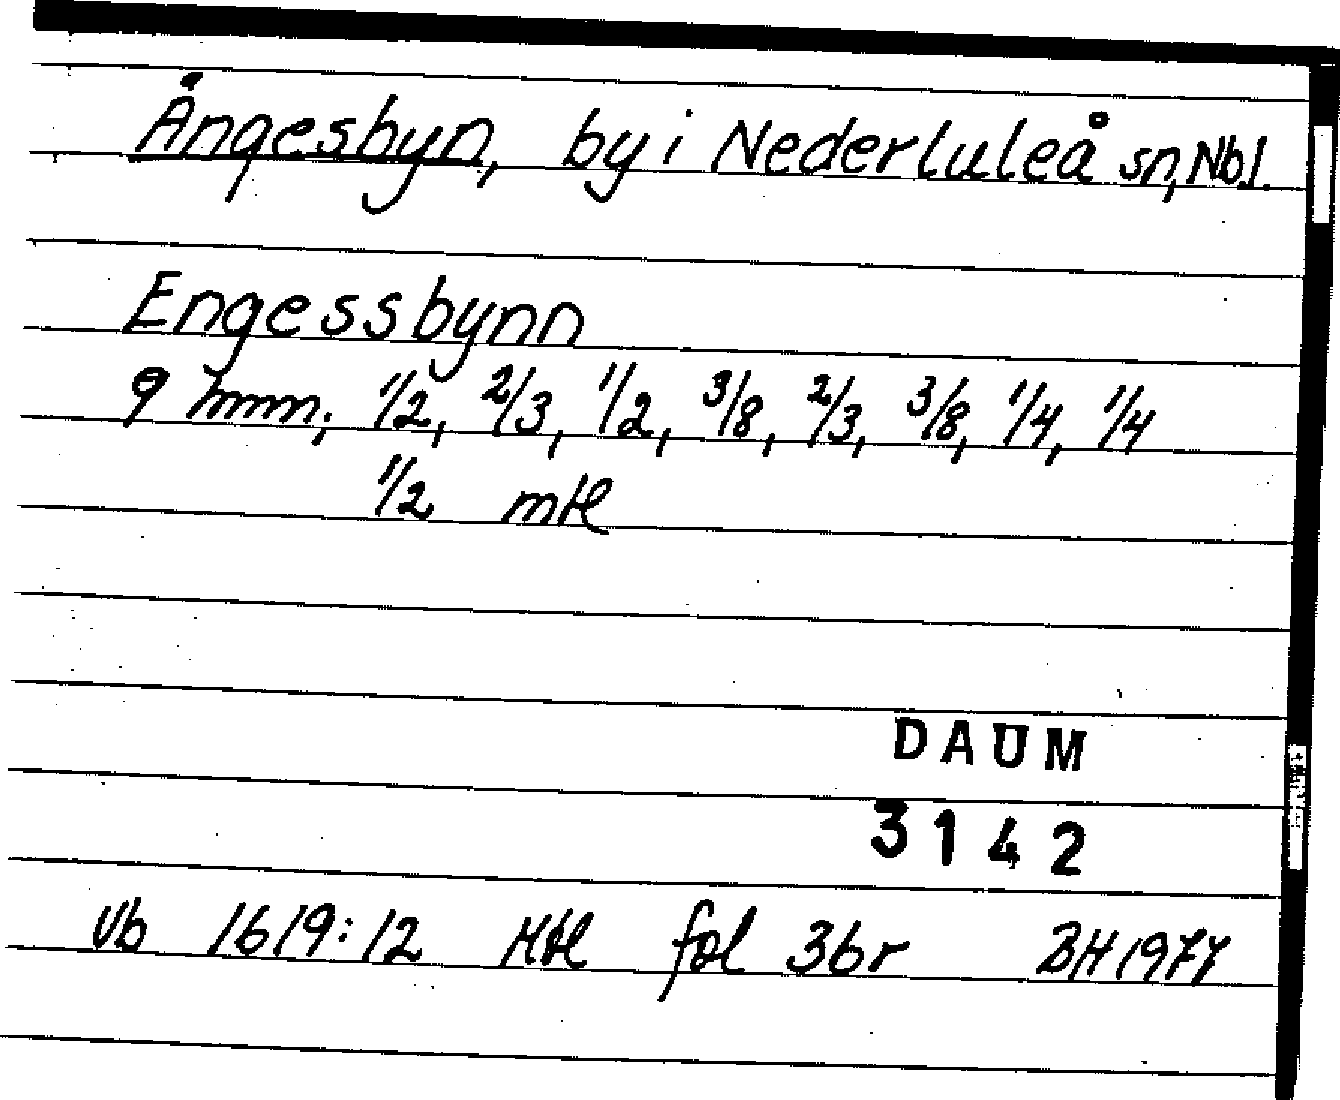 Ängesbyn, by i Nederluleå sn, Nbl.
Engessbynn
9 hmn; 1/2, 2/3, 1/2, 3/8, 2/3, 3/8, 1/4, 1/4
1/2 mtl
DAUM
3142
Vb 1619:12 Mtl fol 36r BH 1977